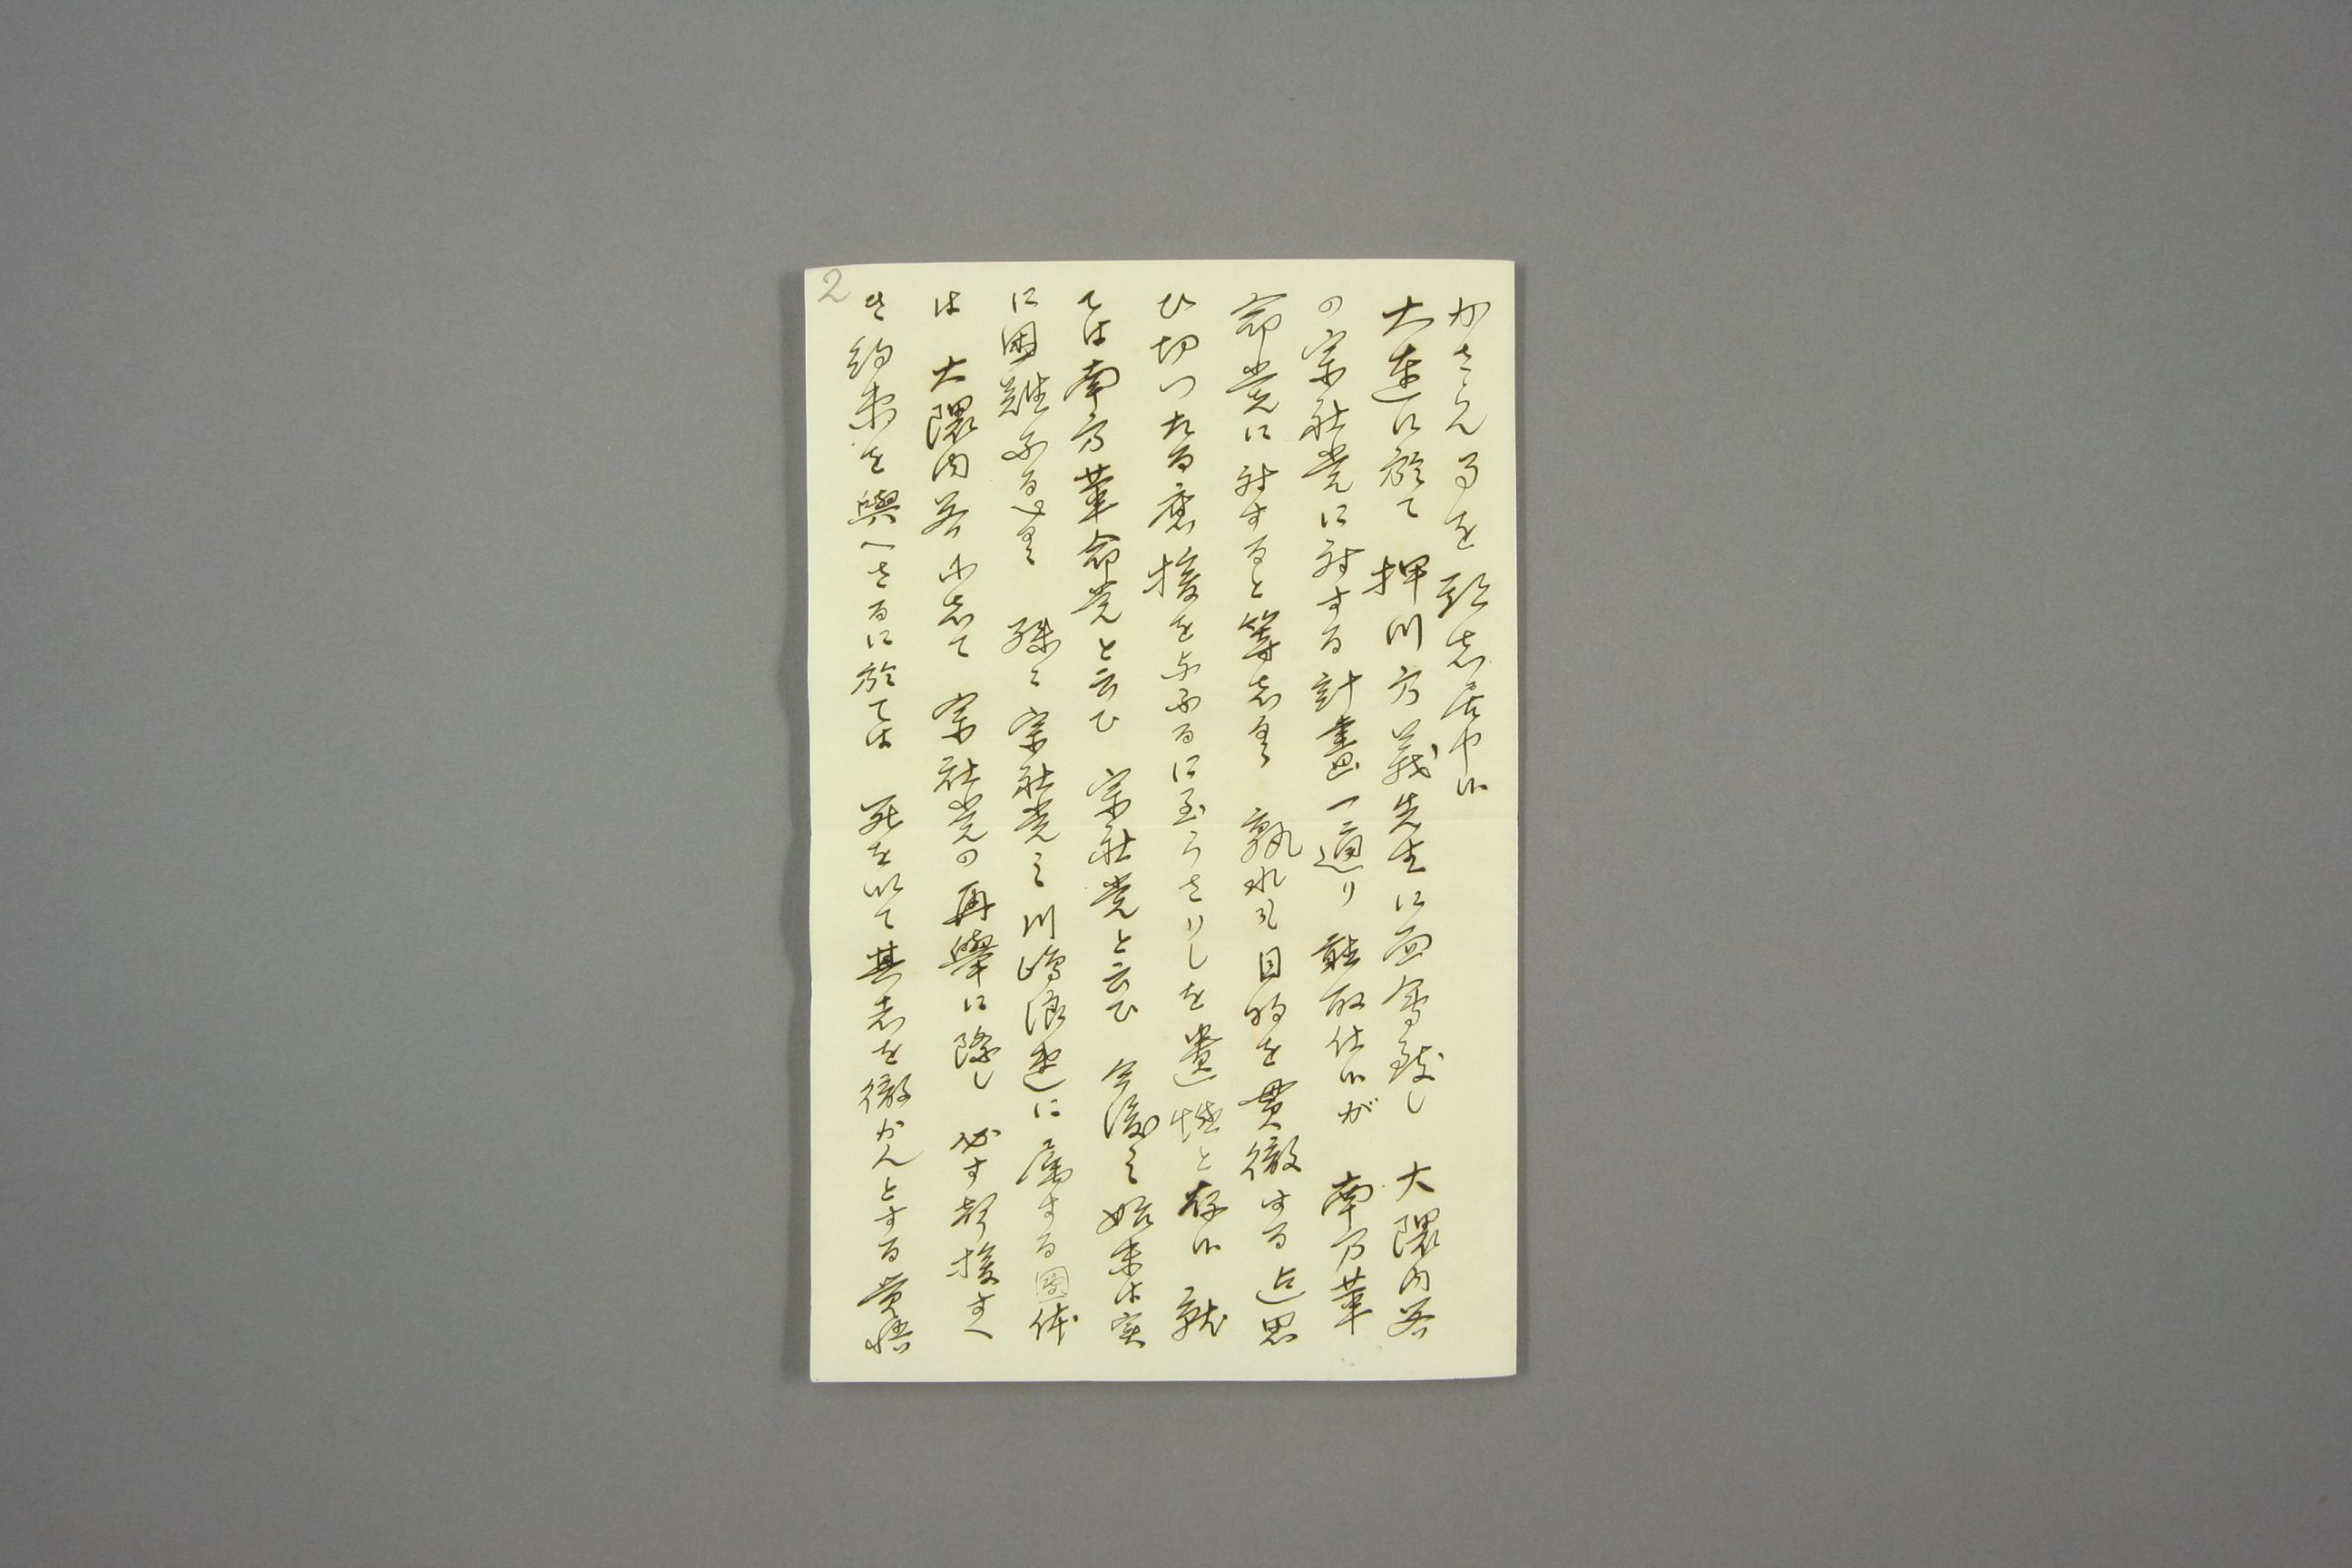 かさん事を致し居や候
大連に於て 押川方義先生に面会致し 大隈内閣
の宗社党に対する計畫一通り聴取仕候が 南方革
命党に対すると等しく 孰れも目的を貫徹する迄思
ひ切つたる應援を与ふるに至らさりしを遺憾と存候 就
ては南方革命党と云ひ 宗社党と云ひ 今後之始末は実
に困難なる 殊に宗社党之川嶋浪速に属する團体
は 大隈内閣にして 宗社党の再擧に際し 必す声援すへ
き約束を與へさるに於ては 死を以て其志を徹かんとする覚悟
2